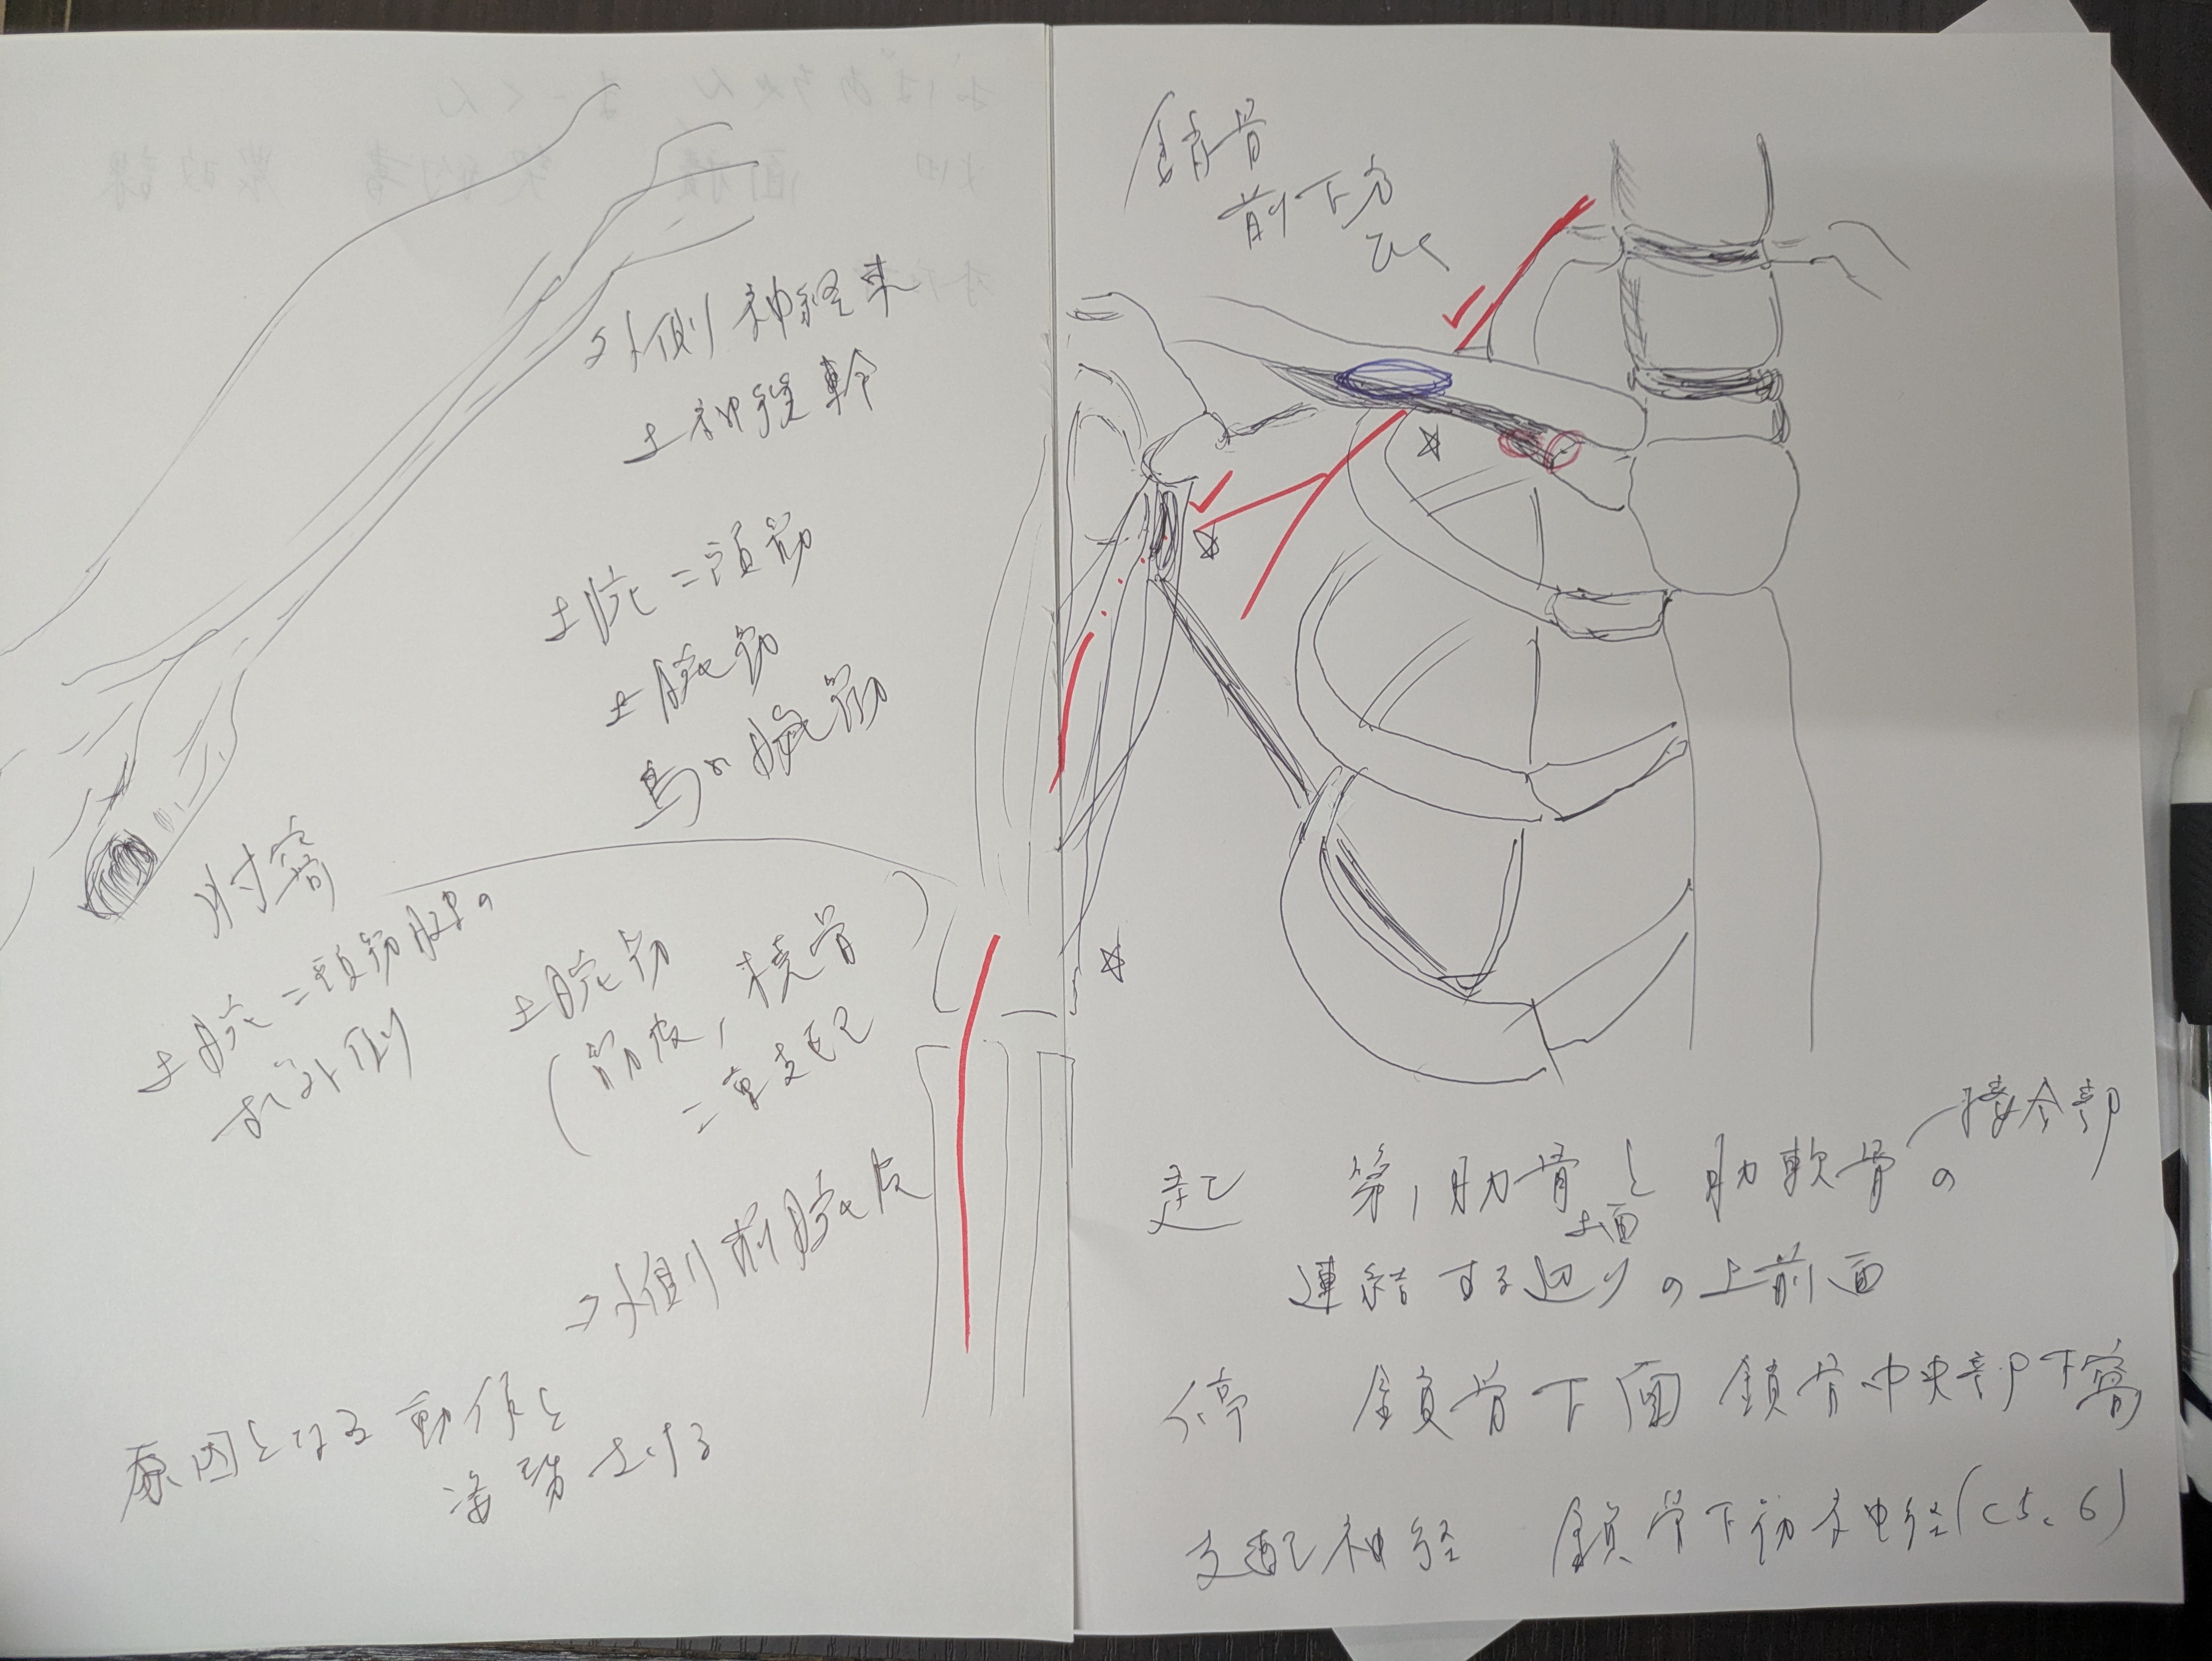 外側神経束
上神経幹
上腕二頭筋
上腕筋
烏口腕筋
肘窩
上腕二頭筋腱の
すぐ外側
上腕筋
(筋皮,橈骨
二重支配
外側前腕皮
原因となる動作と
姿勢
鎖骨
前下方
起 第1肋骨と肋軟骨の
接合部
上面
連結する辺りの上前面
停 鎖骨下面 鎖骨中央部下窩
支配神経 鎖骨下筋神経(C5、6)